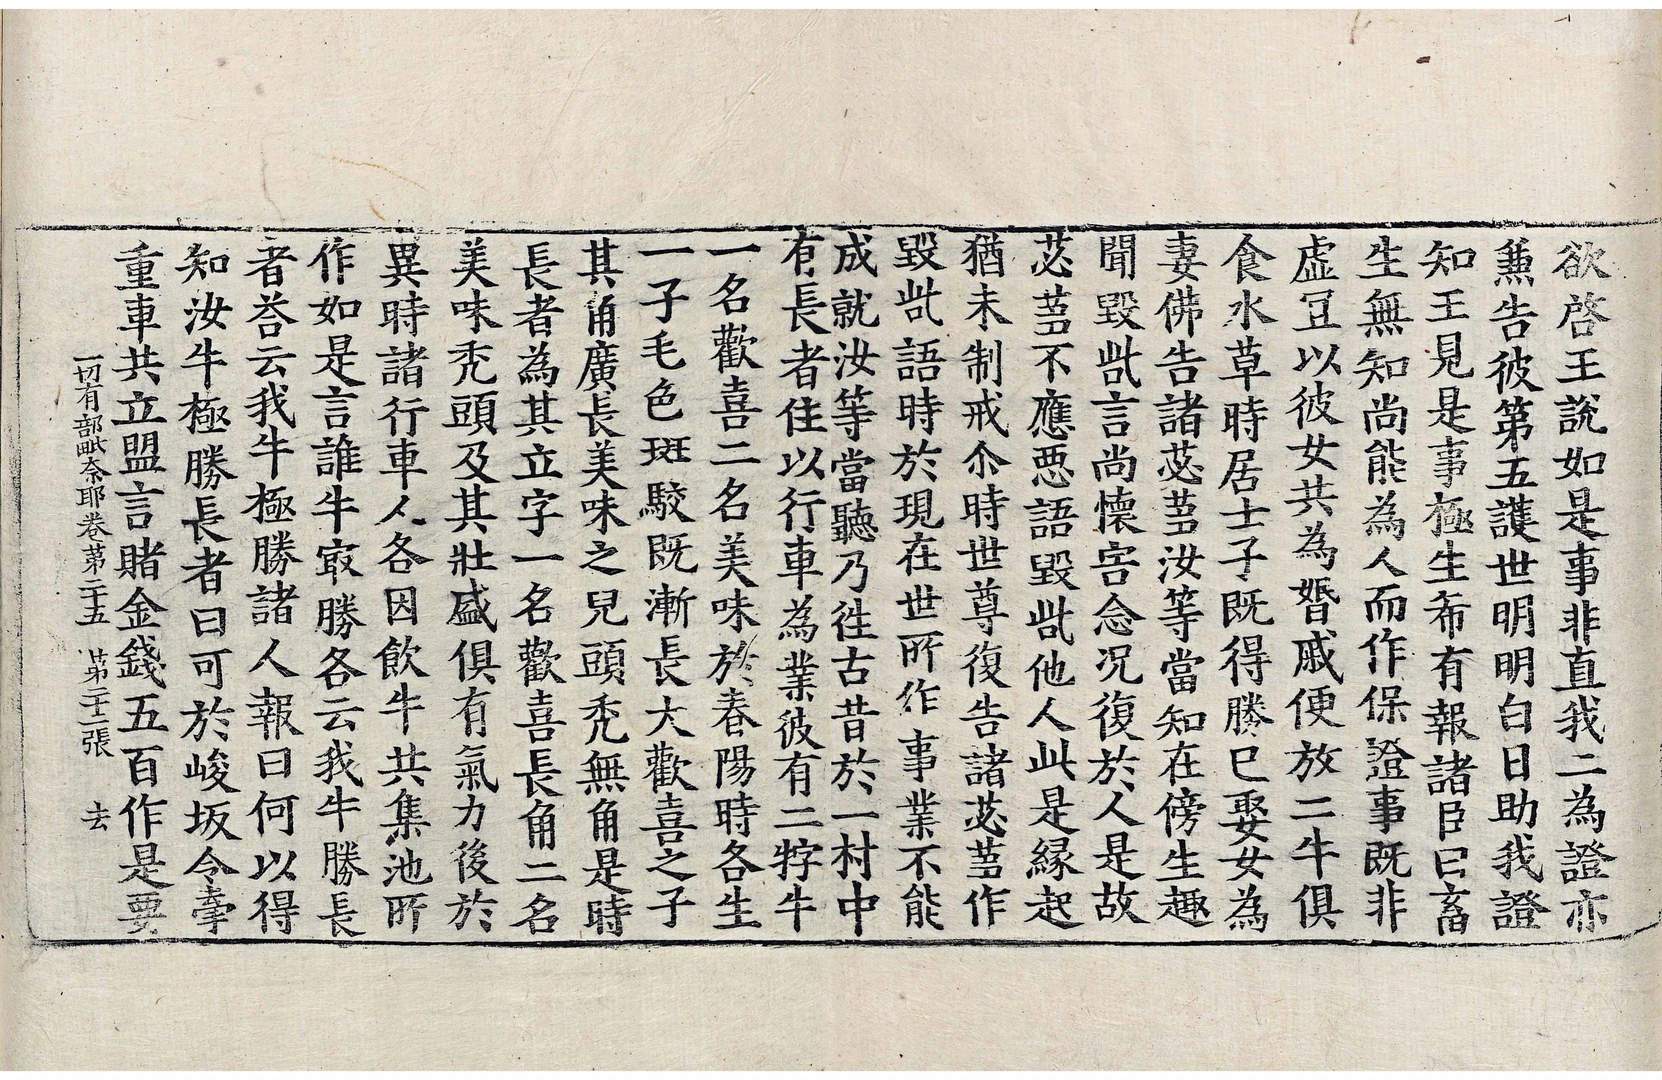 欲啓王說如是事非直我二為證亦
𠔥告彼第五護世明明白日助我證
知王見是事極生希有報諸臣曰畜
生無知尚能為人而作保證事既非
虛冝以彼女共為婚戚便放二牛俱
食水草時居士子既得勝已娶女為
妻佛告諸苾芻汝等當知在傍生趣
聞毀呰言尚懷害念况復於人是故
苾芻不應惡語毀呰他人此是縁起
猶未制戒尒時世尊復告諸苾芻作
毀呰語時於現在世所作事業不能
成就汝等當聽乃徃古昔於一村中
有長者住以行車為業彼有二牸牛
一名歡喜二名美味於春陽時各生
一子毛色斑駮既漸長大歡喜之子
其角廣長美味之兒頭禿無角是時
長者為其立字一名歡喜長角二名
美味禿頭及其壯盛俱有氣力後於
異時諸行車人各因飲牛共集池所
作如是言誰牛㝡勝各云我牛勝長
者荅云我牛極勝諸人報曰何以得
知汝牛極勝長者曰可於峻坂令牽
重車共立盟言賭金錢五百作是要
一切有部毗奈耶卷第二十五 第二十二張 去